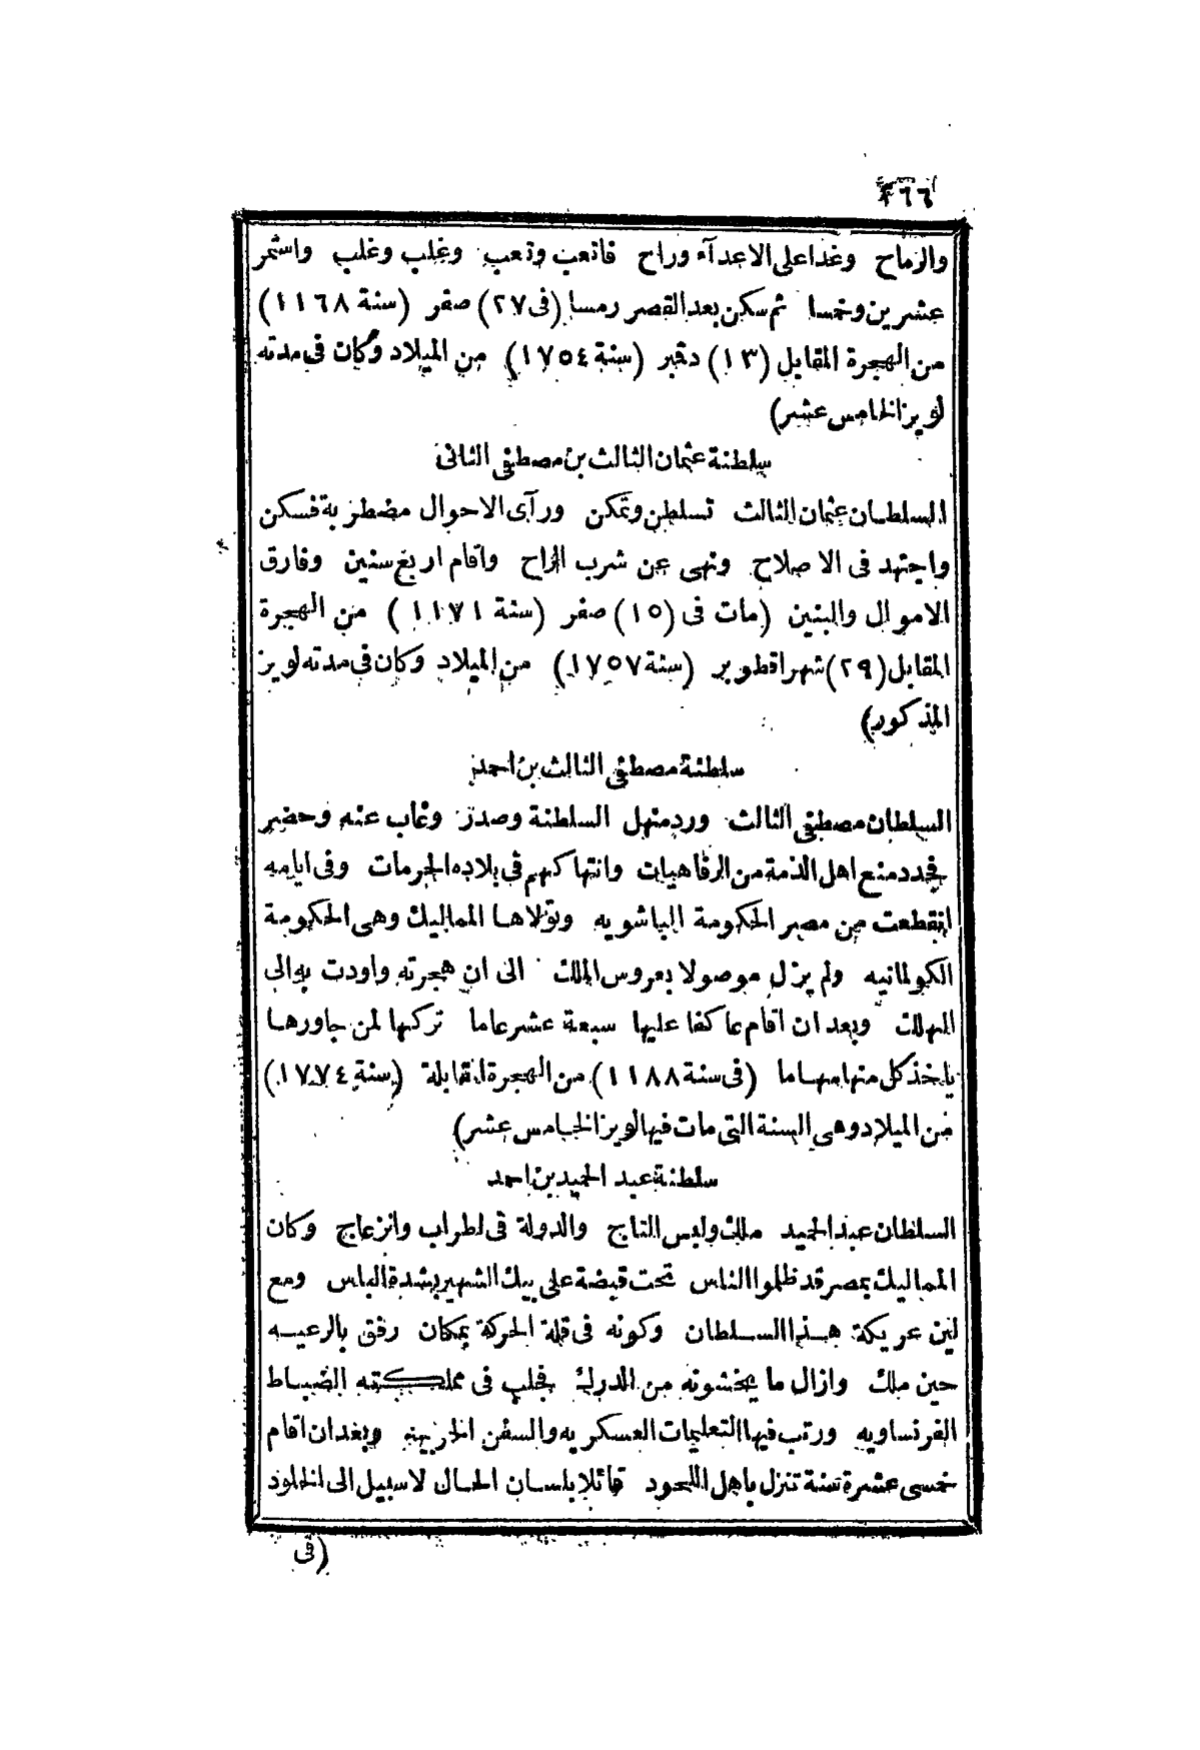 والرماح وغدا على الاعدآء وراح فاتعب وتعب وغلب وغلب واستمر
عشرين وخمسا ثم سكن بعد القصر رمسا (فى ٢٧) صفر (سنة ١١٦٨)
من الهجرة المقابل (١٣) دقبر (سنة ١٧٥٤) من الميلاد وكان فى مدته
لويز الخامس عشر)
سلطنة عثمان الثالث بن مصطفى الثانى
السلطان عثمان الثالث تسلطن وتمكن ورآى الاحوال مضطربة فسكن
واجتهد فى الاصلاح ونهى عن شرب الراح واقام اربع سنين وفارق
الاموال والبنين (مات فى (١٥) صفر (سنة ١١٧١) من الهجرة
المقابل (٢٩) شهر اقطوبر (سنة ١٧٥٧) من الميلاد وكان فى مدته لويز
المذكور)
سلطنة مصطفى الثالث بن احمد
السلطان مصطفى الثالث ورد منهل السلطنة وصدر وغاب عنه وحضر
فجدد منع اهل الذمة من الرفاهيات وانتهاكهم فى بلاده الحرمات وفى ايامه
انقطعت من مصر الحكومة الباشويه وتولاها المماليك وهى الحكومة
الكولمانيه ولم يزل موصولا بعروس الملك الى ان هجرته واودت به الى
المهلك وبعد ان اقام عاكفا عليها سبعة عشر عاما تركها لمن جاورها
ياخذ كل منها سهاما (فى سنة ١١٨٨) من الهجرة المقابلة (سنة ١٧٧٤)
من الميلاد وهى السنة التى مات فيها لويز الخامس عشر)
سلطنة عبد الحميد بن احمد
السلطان عبد الحميد ملك ولبس التاج والدولة فى اطراب وانزعاج وكان
المماليك بمصر قد ظلموا الناس تحت قبضة على بيك الشهير بشدة الباس ومع
لين عريكة هذا السلطان وكونه فى قلة الحركة بمكان رفق بالرعيه
حين ملك وازال ما يخشونه من الدرك فجلب فى مملكته الضباط
الفرنساويه ورتب فيها التعليمات العسكريه والسفن الحربيه وبعد ان اقام
خمسى عشرة سنة تنزل باهل اللحود قائلا بلسان الحال لا سبيل الى الخلود
(فى